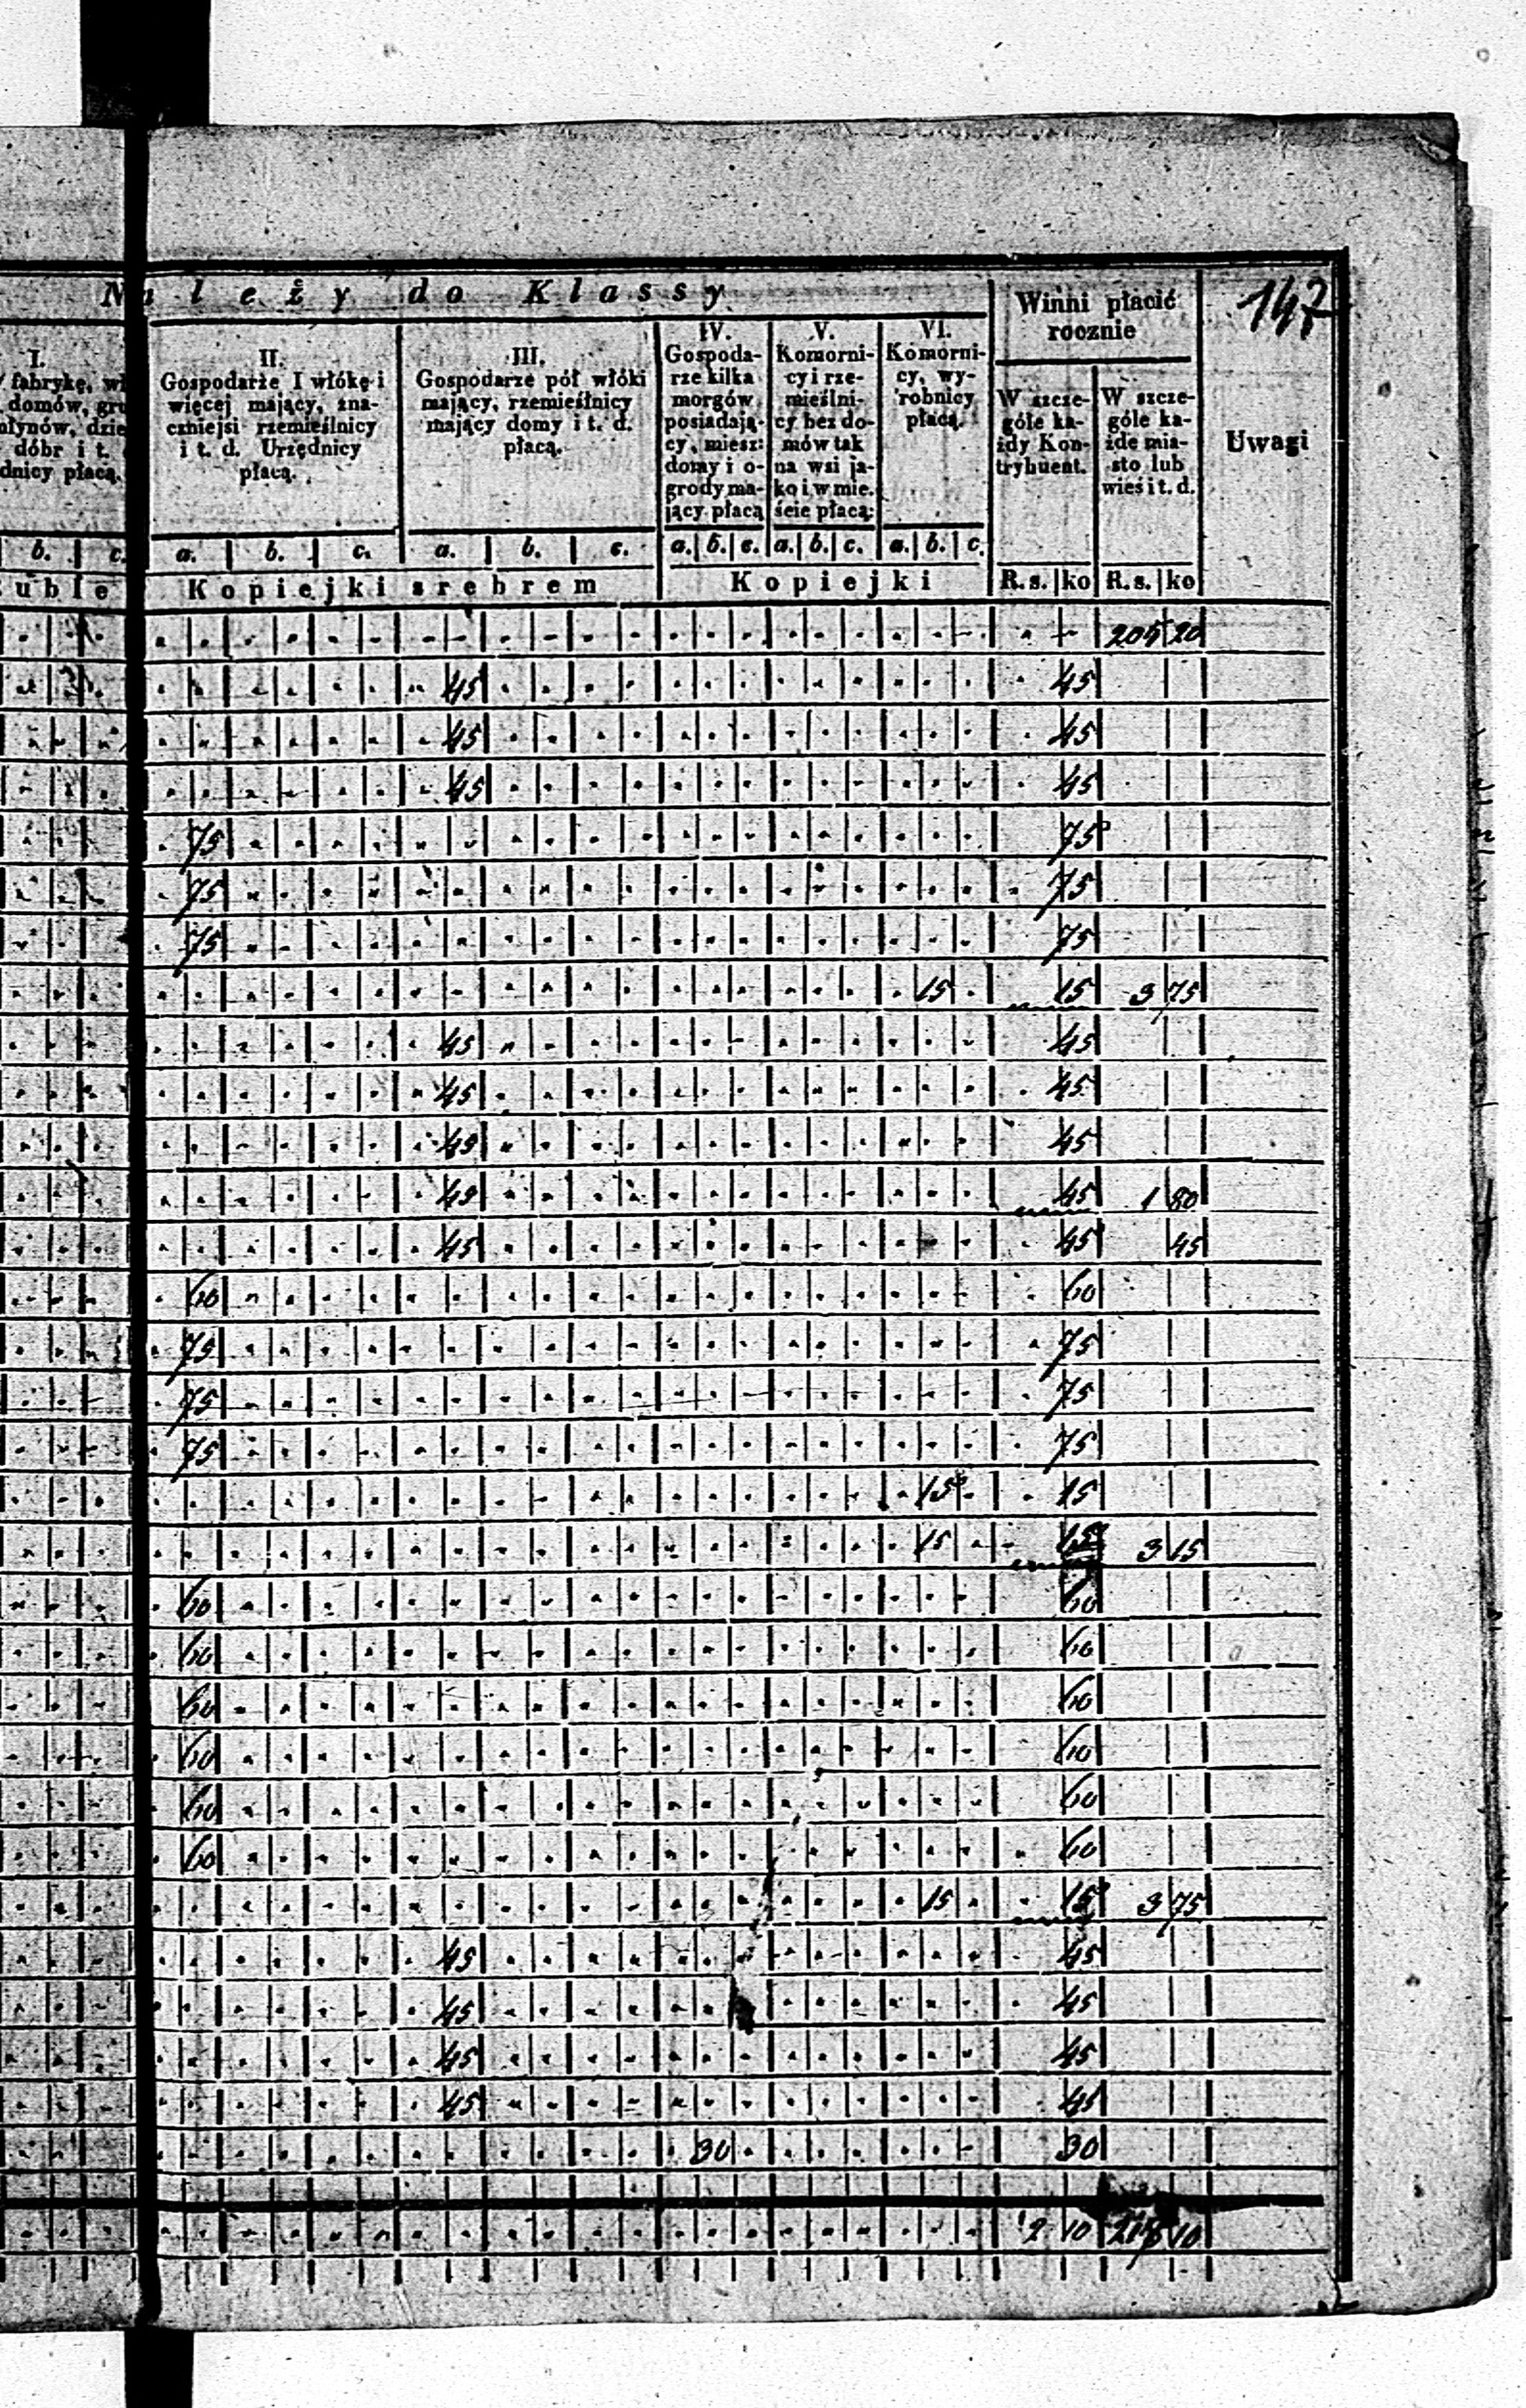 Należy do Klassy
Winni płacić rocznie
147
I.
fabrykę, wł
domów, gru
młynów, dzie
dóbr i t.
dnicy płacą.
II.
Gospodarże I włókę i
więcej mający, zna-
czniejsi rzemieślnicy
i t. d. Urzędnicy
płacą.
III.
Gospodarze pół włóki
mający, rzemieślnicy
mający domy i t. d.
płacą.
IV.
Gospoda-
rze kilka
morgów
posiadają-
cy, miesz:
domy i o-
grody ma-
jący płacą
V.
Komorni-
cy i rze-
mieślni-
cy bez do-
mów tak
na wsi ja-
ko i w mie.
ście płacą:
VI.
Komorni-
cy, wy-
robnicy
płacą.
W szcze-
góle ka-
żdy Kon-
trybuent.
W szcze-
góle ka-
żde mia-
sto lub
wieś i t. d.
Uwagi
b. c. a. b. c. a. b. c. a. b. c. a. b. c. a. b. c.
uble Kopiejki srebrem Kopiejki R.s. ko R.s. ko
205 20
45 45
45 45
45 45
75 75
75 75
75 75
15 15 3 75
45 45
45 45
45 45
45 45 1 80
45 45 45
60 60
75 75
75 75
75 75
15 15
15 15 3 15
60 60
60 60
60 60
60 60
60 60
60 60
15 15 3 75
45 45
45 45
45 45
45 45
30 30
2 10 218 10